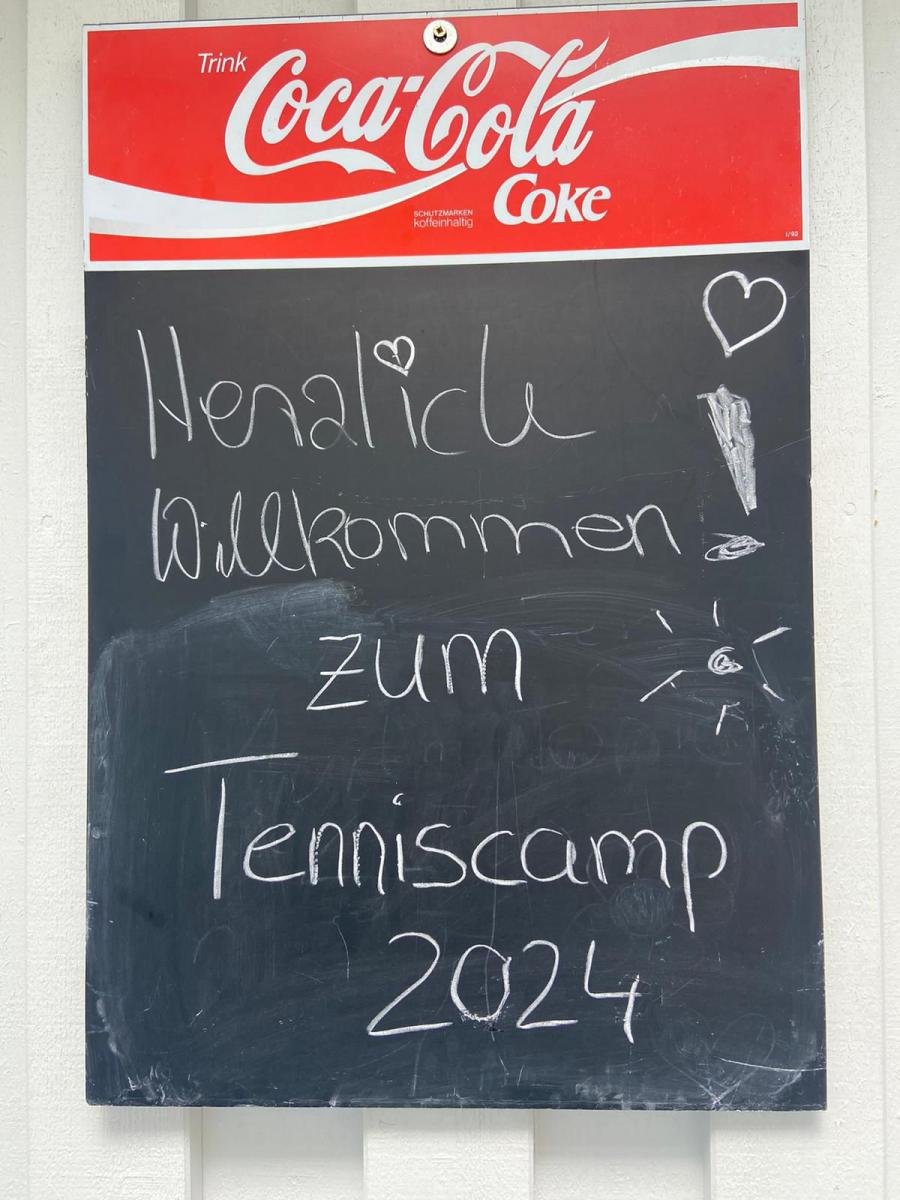 Trink
Coca-Cola
Coke
SCHUTZMARKEN
koffeinhaltig
1/92
Herzlich
Willkommen !
zum
Tenniscamp
2024